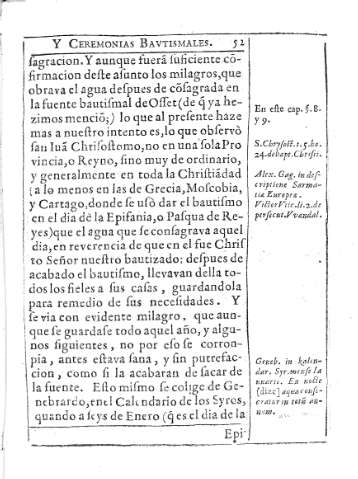 Y CEREMONIAS BAVTISMALES. 52
sagracion. Y aunque fuera suficiente cõ-
firmacion deste asunto los milagros, que
obrava el agua despues de cõsagrada en
la fuente bautismal de Osset (de q̃ ya he-
zimos menciõ;) lo que al presente haze
mas a nuestro intento es, lo que observò
san Iuã Chrisostomo, no en una sola Pro
vincia, o Reyno, sino muy de ordinario,
y generalmente en toda la Christiãdad
(a lo menos en las de Grecia, Moscobia,
y Cartago, donde se usò dar el bautismo
en el dia de la Epifania, o Pasqua de Re-
yes) que el agua que se consagrava aquel
dia, en reverencia de que en el fue Chris
to Señor nuestro bautizado: despues de
acabado el bautismo, llevavan della to-
dos los fieles a sus casas, guardandola
para remedio de sus necesidades. Y
se via con evidente milagro, que aun-
que se guardase todo aquel año, y algu-
nos siguientes, no por eso se corron-
pia, antes estava sana, y sin putrefac-
cion, como si la acabaran de sacar de
la fuente. Esto mismo se colige de Ge-
nebrardo, en el Calendario de los Syros,
quando a seys de Enero (q̃ es el dia de la
Epi-
En este cap. §. 8.
y 9.
S. Chrysost. t. 5. ho.
24. de bapt. Christi.
Alex. Gag. in des-
criptione Sarma-
tiæ Europeæ.
Victor Vtic. li. 2. de
persecut. Vvandal.
Geneb. in kalen-
dar. Syr. mense Ia
nuario. Ea nocte
[diez] aqua conse-
cratur in totũ an-
num.